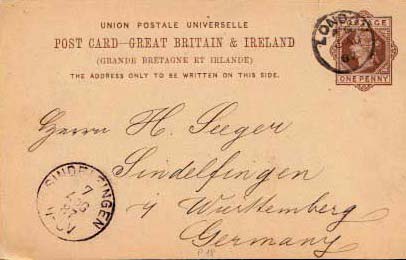 UNION POSTALE UNIVERSELLE
POST CARD–GREAT BRITAIN & IRELAND
(GRANDE BRETAGNE ET IRLANDE)
THE ADDRESS ONLY TO BE WRITTEN ON THIS SIDE.
POSTAGE
ONE PENNY
LONDON
Herrn H. Seeger
Sindelfingen
Württemberg
Germany
SINDELFINGEN
7
AUG
87
P 18